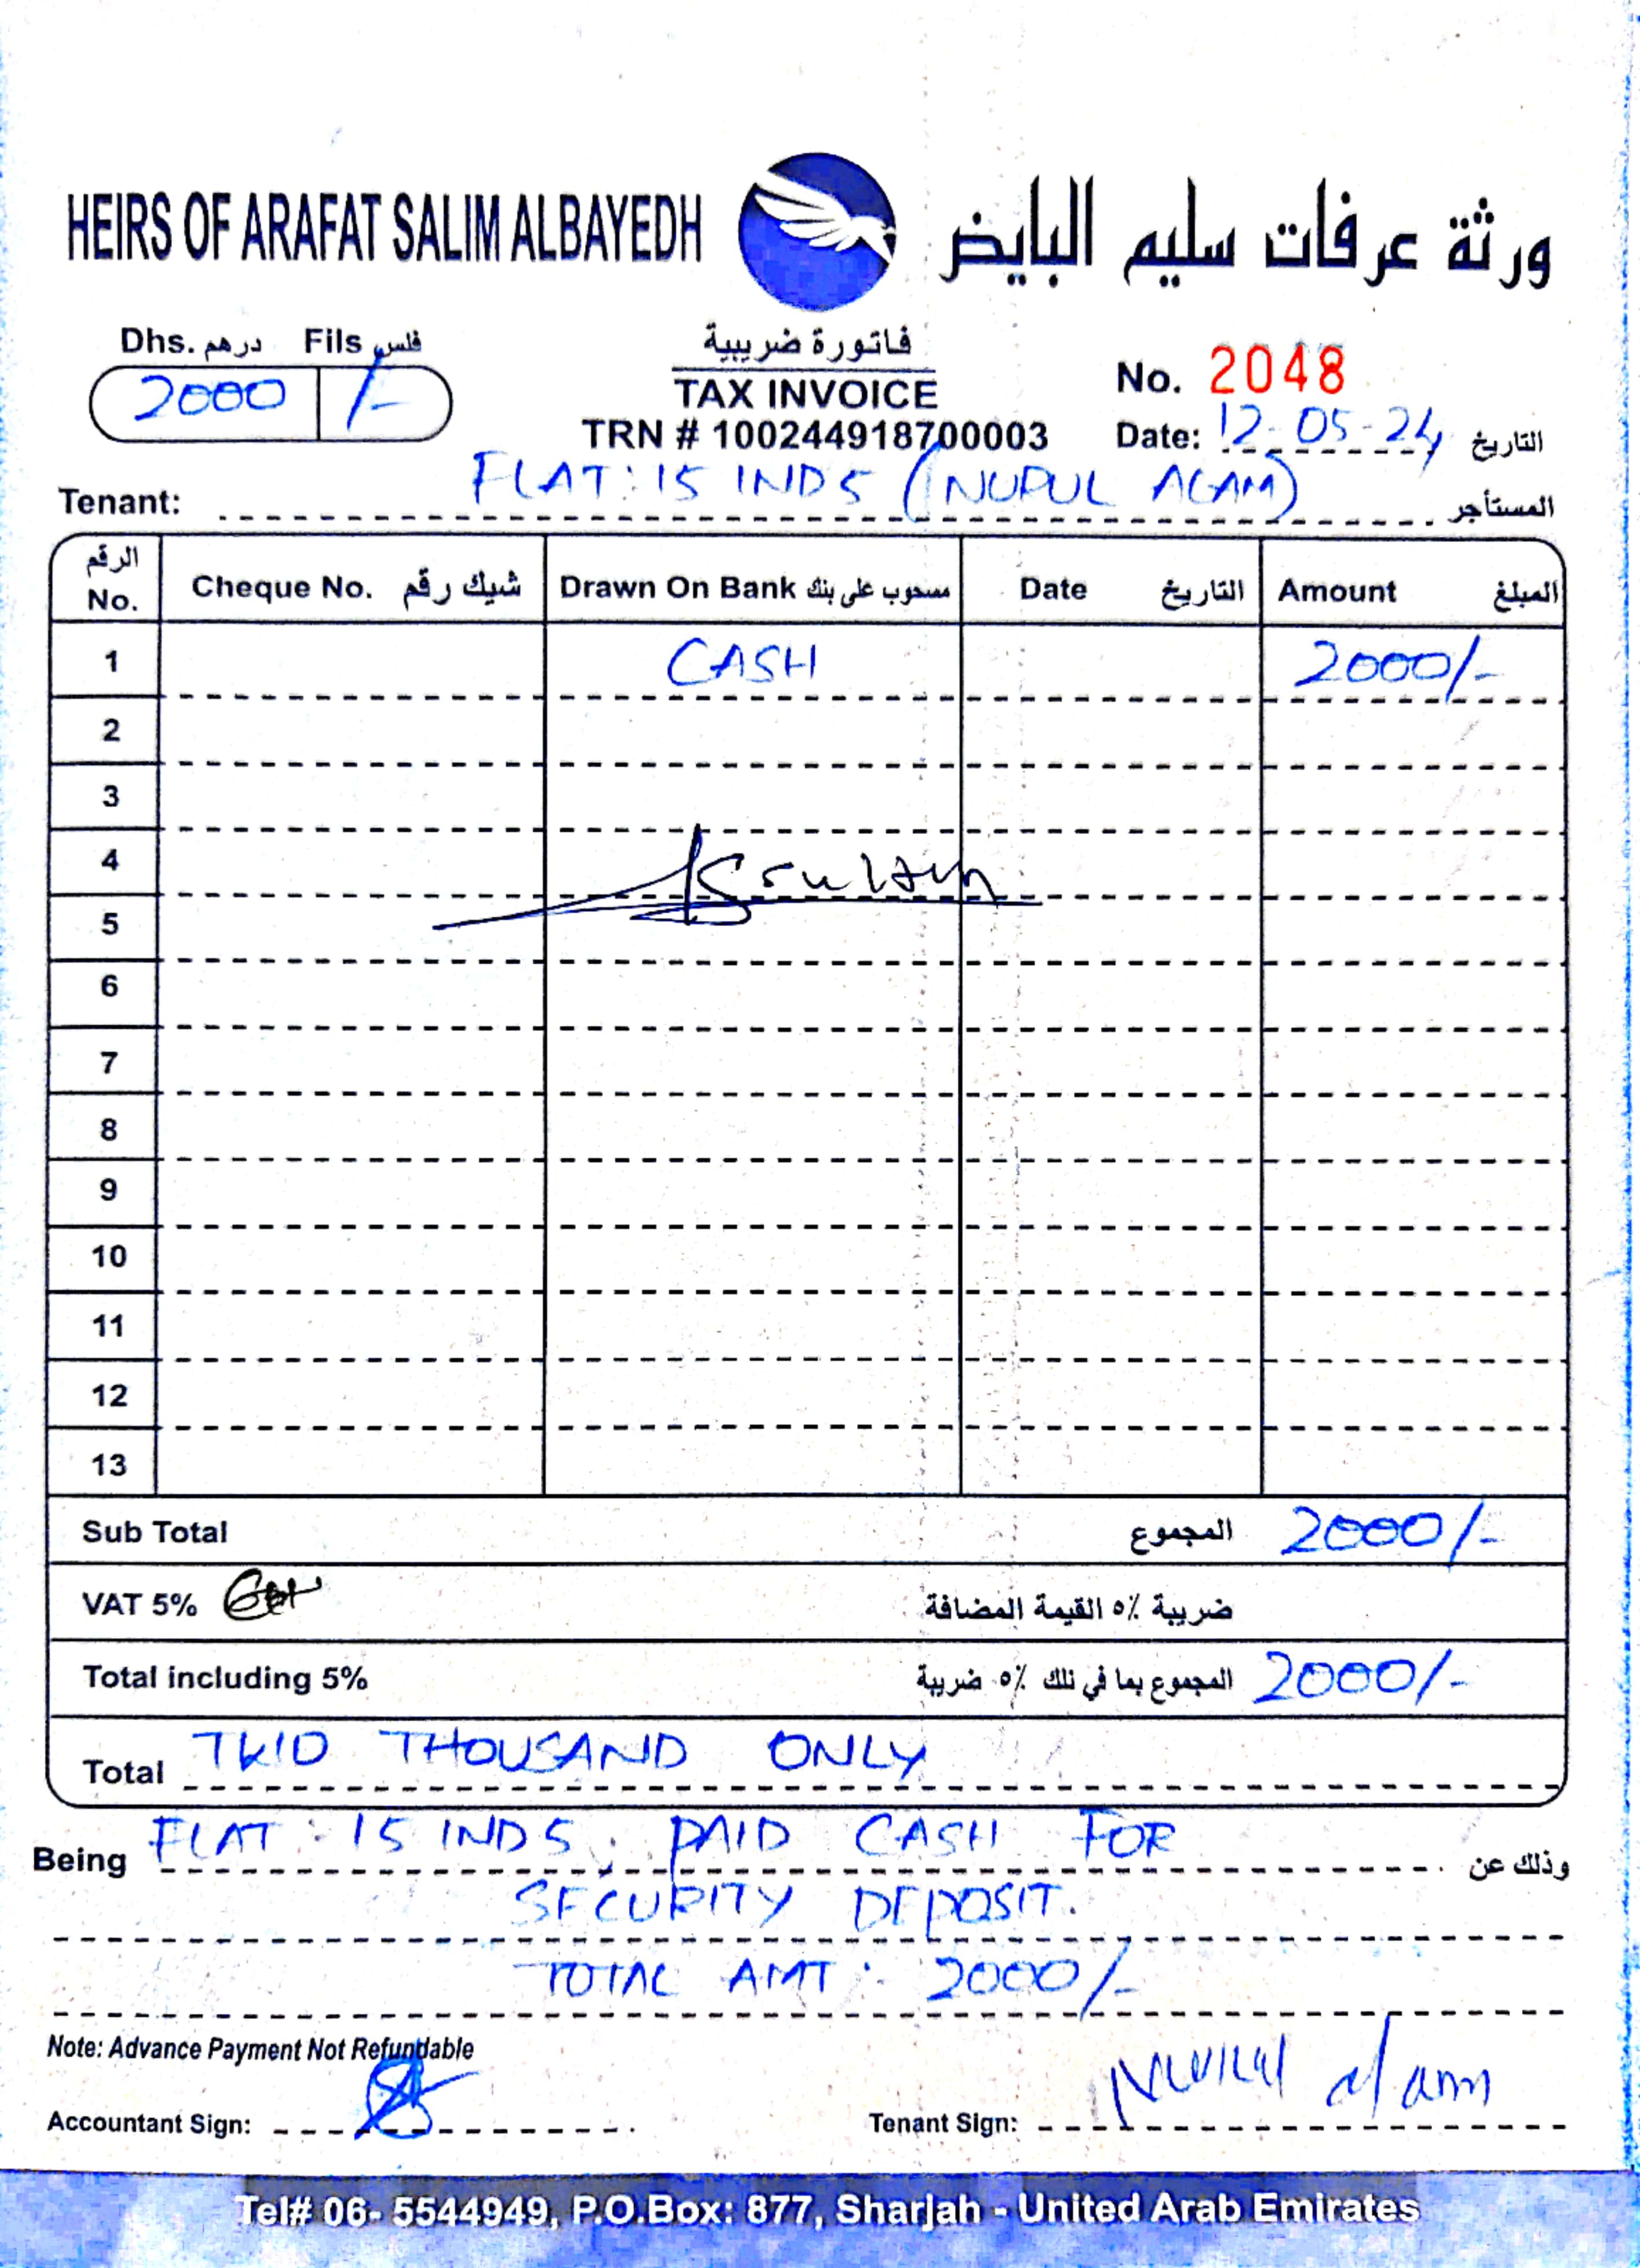 HEIRS OF ARAFAT SALIM ALBAYEDH ورثة عرفات سليم البايض
Dhs. درهم Fils فلس
2000 /-
فاتورة ضريبية
TAX INVOICE
TRN # 100244918700003
No. 2048
Date: 12-05-24 التاريخ
Tenant: FLAT: 15 IND 5 (NURUL ALAM) المستأجر
الرقم No. Cheque No. شيك رقم Drawn On Bank مسحوب على بنك Date التاريخ Amount المبلغ
1 CASH 2000/-
2
3
4
5
6
7
8
9
10
11
12
13
Sub Total المجموع 2000/-
VAT 5% ضريبة ٥٪ القيمة المضافة
Total including 5% المجموع بما في ذلك ٥٪ ضريبة 2000/-
Total TWO THOUSAND ONLY
Being FLAT: 15 IND 5, PAID CASH FOR وذلك عن
SECURITY DEPOSIT.
TOTAL AMT: 2000/-
Note: Advance Payment Not Refundable
Accountant Sign:
Tenant Sign: Nurul alam
Tel# 06- 5544949, P.O.Box: 877, Sharjah - United Arab Emirates